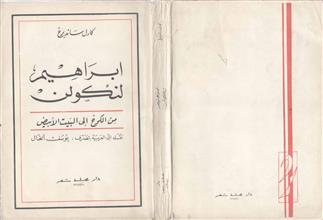 كارل ساندبرغ
ابراهيم
لنكولن
من الكوخ إلى البيت الأبيض
نقله إلى العربية
يوسف الخال
دار مجلة شعر
دار مجلة شعر